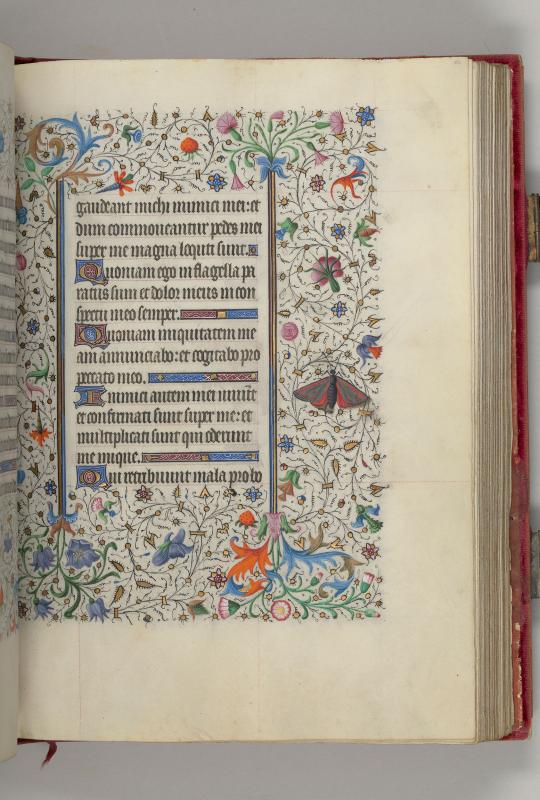 gaudeant michi inimici mei: et
dum commoueantur pedes mei
super me magna locuti sunt.
Quoniam ego in flagella pa
ratus sum et dolor meus in con
spectu meo semper.
Quoniam iniquitatem me
am annunciabo: et cogitabo pro
peccato meo.
Inimici autem mei uiuunt
et confirmati sunt super me: et
multiplicati sunt qui oderunt
me inique.
Qui retribuunt mala pro bo